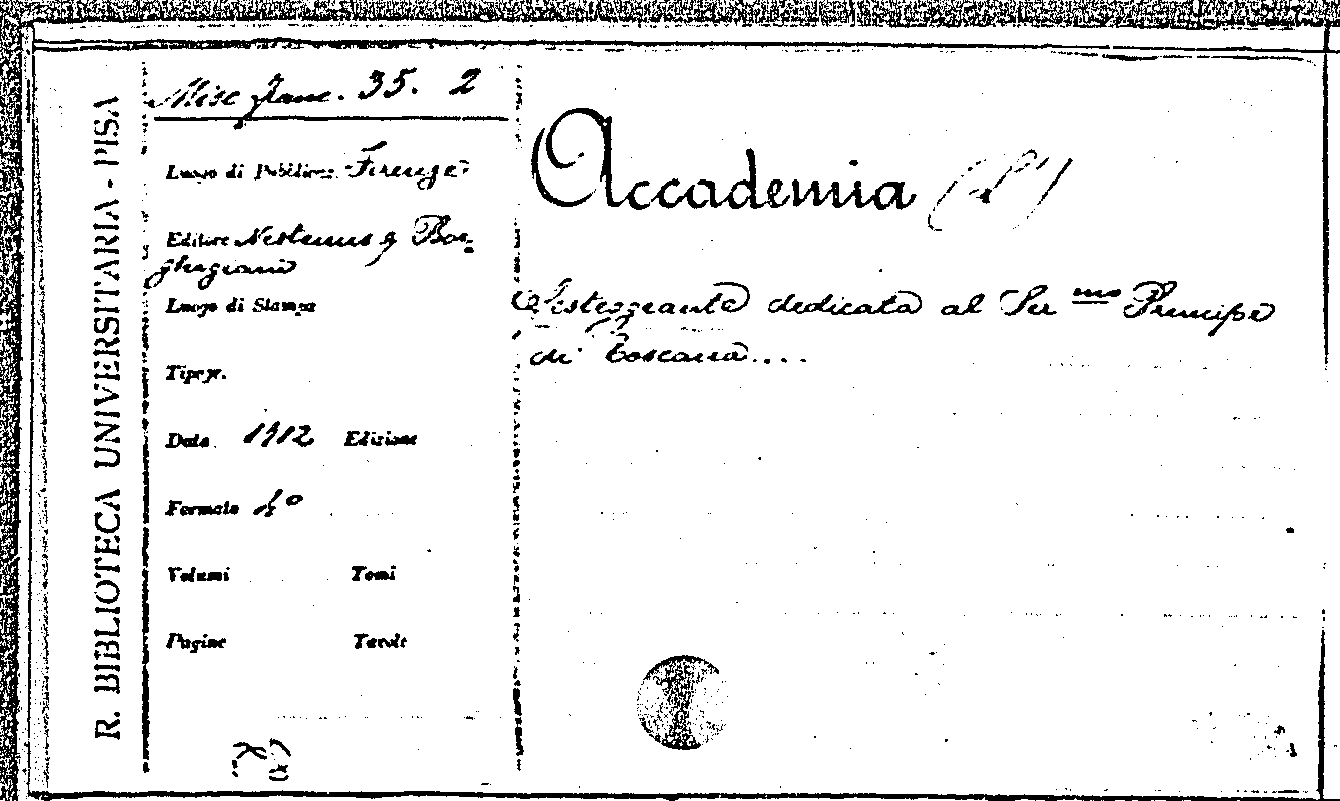 R. BIBLIOTECA UNIVERSITARIA - PISA
Misc. 35. 2
Luogo di Pubblicaz. Firenze
Editore Nestenus e Bor-
ghigiani
Luogo di Stampa
Tipogr.
Data 1712 Edizione
Formato 4°
Volumi Tomi
Pagine Tavole
Accademia (L')
Festeggiante dedicata al Ser mo Principe
di Toscana....